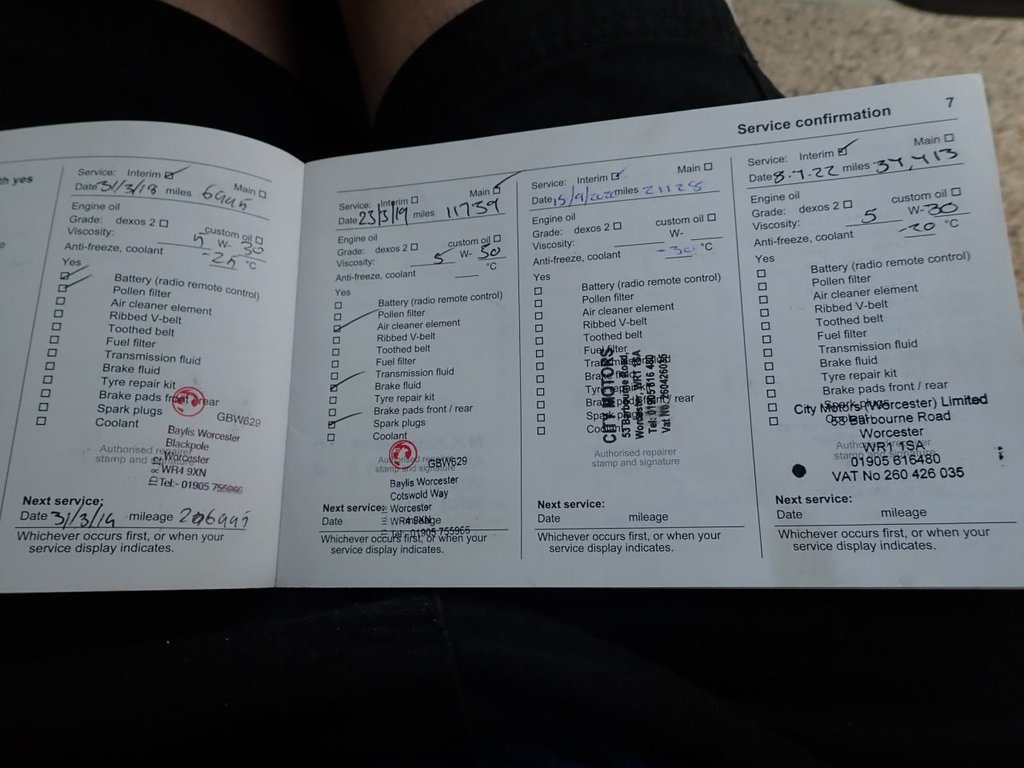 Service confirmation 7
th yes
Service: Interim Main
Date 31/3/18 miles 6995
Engine oil
Grade: dexos 2 custom oil
Viscosity: 5 W- 30
Anti-freeze, coolant -25 °C
Yes
Battery (radio remote control)
Pollen filter
Air cleaner element
Ribbed V-belt
Toothed belt
Fuel filter
Transmission fluid
Brake fluid
Tyre repair kit
Brake pads front / rear
Spark plugs
Coolant
GBW629
Baylis Worcester
Blackpole
Worcester
WR4 9XN
Tel:- 01905 755966
Authorised repairer
stamp and signature
Next service:
Date 31/3/19 mileage
Whichever occurs first, or when your
service display indicates.
Service: Interim Main
Date 23/3/19 miles 11739
Engine oil
Grade: dexos 2 custom oil
Viscosity: 5 W- 30
Anti-freeze, coolant °C
Yes
Battery (radio remote control)
Pollen filter
Air cleaner element
Ribbed V-belt
Toothed belt
Fuel filter
Transmission fluid
Brake fluid
Tyre repair kit
Brake pads front / rear
Spark plugs
Coolant
GBW629
Authorised repairer
stamp and signature
Baylis Worcester
Cotswold Way
Worcester
WR4 9XN
Tel:- 01905 755966
Next service:
Date mileage
Whichever occurs first, or when your
service display indicates.
Service: Interim Main
Date 15/9/2020 miles 21128
Engine oil
Grade: dexos 2 custom oil
Viscosity: W-
Anti-freeze, coolant -30 °C
Yes
Battery (radio remote control)
Pollen filter
Air cleaner element
Ribbed V-belt
Toothed belt
Fuel filter
Transmission fluid
Brake fluid
Tyre repair kit
Brake pads front / rear
Spark plugs
Coolant
CITY MOTORS
53 Barbourne Road,
Worcester WR1 1SA
Tel: 01905 616 480
Vat No: 260426035
Authorised repairer
stamp and signature
Next service:
Date mileage
Whichever occurs first, or when your
service display indicates.
Service: Interim Main
Date 8-7-22 miles 37,413
Engine oil
Grade: dexos 2 custom oil
Viscosity: 5 W-30
Anti-freeze, coolant -20 °C
Yes
Battery (radio remote control)
Pollen filter
Air cleaner element
Ribbed V-belt
Toothed belt
Fuel filter
Transmission fluid
Brake fluid
Tyre repair kit
Brake pads front / rear
Spark plugs
Coolant
City Motors (Worcester) Limited
53 Barbourne Road
Worcester
WR1 1SA
01905 616480
VAT No 260 426 035
Authorised repairer
stamp and signature
Next service:
Date mileage
Whichever occurs first, or when your
service display indicates.